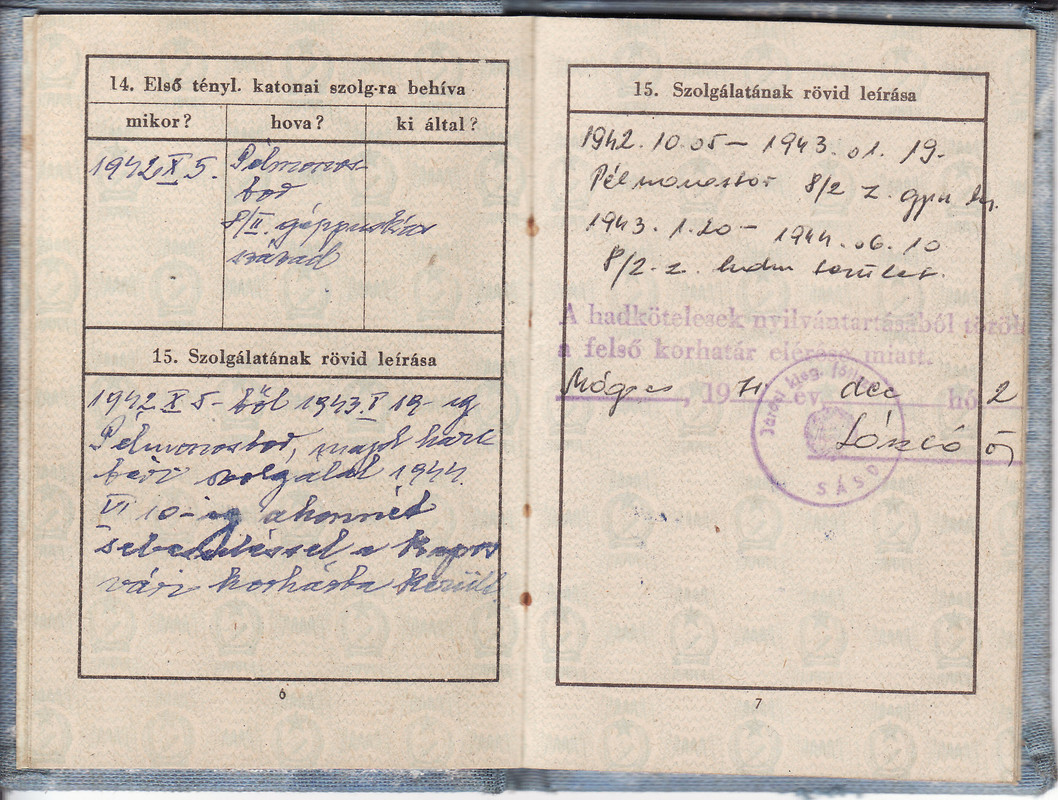 14. Első tényl. katonai szolg-ra behíva
mikor? hova? ki által?
1942 X 5. Pélmonos-
tor
8/II. géppuskás
század
15. Szolgálatának rövid leírása
1942 X 5-től 1943 I 19-ig
Pélmonostor, majd harc
téri szolgálat 1944.
VI 10-ig ahonnét
sebesüléssel a Kapos
vári korházba került
6
15. Szolgálatának rövid leírása
1942. 10. 05 – 1943. 01. 19.
Pélmonostor 8/2 z. gpu
1943. 1. 20 – 1944. 06. 10
8/2. z. hdm terület.
A hadkötelesek nyilvántartásából töröl
a felső korhatár elérése miatt.
Mágocs, 1971. év dec hó 2
László ő
Járási kieg.
SÁSD
7